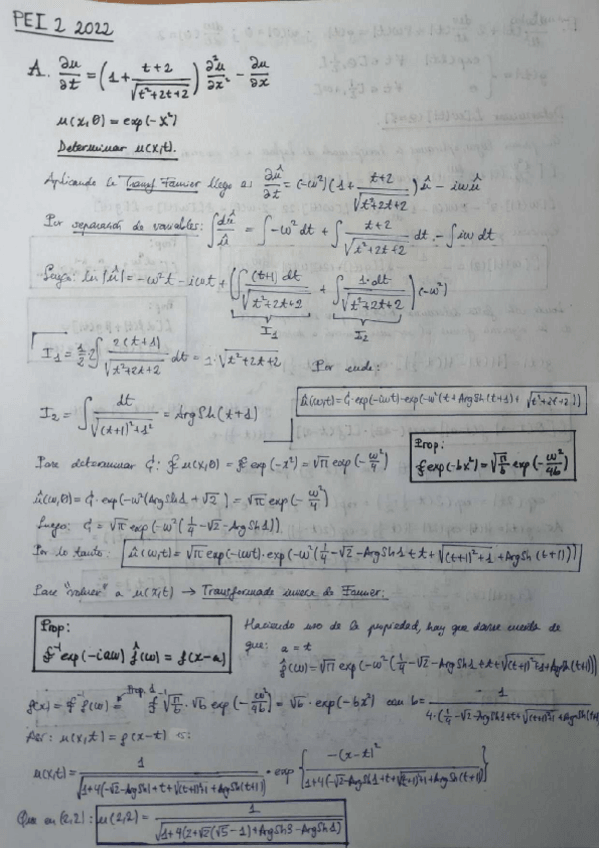 PEI 2 2022
A. ∂u/∂t = (1 + (t+2)/√(t²+2t+2)) ∂²u/∂x² - ∂u/∂x
u(x,0) = exp(-x²)
Determinar u(x,t).
Aplicando la Transf Fourier llego a: ∂û/∂t = (-ω²)(1 + (t+2)/√(t²+2t+2)) û - iωû
Por separación de variables: ∫dû/û = ∫-ω² dt + ∫(t+2)/√(t²+2t+2) dt - ∫iω dt
Luego: ln|û| = -ω²t - iωt + (∫(t+1)dt/√(t²+2t+2) + ∫1·dt/√(t²+2t+2)) (-ω²)
I₁ I₂
I₁ = 1/2 ∫ 2(t+1)/√(t²+2t+2) dt = 1·√(t²+2t+2) Por ende:
I₂ = ∫ dt/√((t+1)²+1²) = ArgSh(t+1) û(ω,t) = C·exp(-iωt)·exp(-ω²(t+ArgSh(t+1)+√(t²+2t+2)))
Para determinar C: F u(x,0) = F exp(-x²) = √π exp(-ω²/4)
Prop:
F exp(-bx²) = √(π/b) exp(-ω²/4b)
û(ω,0) = C·exp(-ω²(ArgSh1 + √2)) = √π exp(-ω²/4)
Luego: C = √π exp(-ω²(1/4 - √2 - ArgSh1)).
Por lo tanto: û(ω,t) = √π exp(-iωt)·exp(-ω²(1/4 - √2 - ArgSh1 + t + √((t+1)²+1) + ArgSh(t+1)))
Para "volver" a u(x,t) → Transformada inversa de Fourier:
Prop:
F⁻¹ exp(-iaω) f̂(ω) = f(x-a)
Haciendo uso de la propiedad, hay que darse cuenta de
que: a = t
f̂(ω) = √π exp(-ω²(1/4 - √2 - ArgSh1 + t + √((t+1)²+1) + ArgSh(t+1)))
f(x) = F⁻¹ f(ω) = Prop. 1 F⁻¹ √(π/b)·√b exp(-ω²/4b) = √b·exp(-bx²) con b = 1/(4·(1/4 - √2 - ArgSh1 + t + √((t+1)²+1) + ArgSh(t+1)
u(x,t) = f(x-t) es:
u(x,t) = 1/√(1+4(-√2-ArgSh1+t+√((t+1)²+1)+ArgSh(t+1))) · exp{-(x-t)²/(1+4(-√2-ArgSh1+t+√((t+1)²+1)+ArgSh(t+1)))}
Que en (2,2): u(2,2) = 1/√(1+4(2+√2(√5-1)+ArgSh3-ArgSh1))